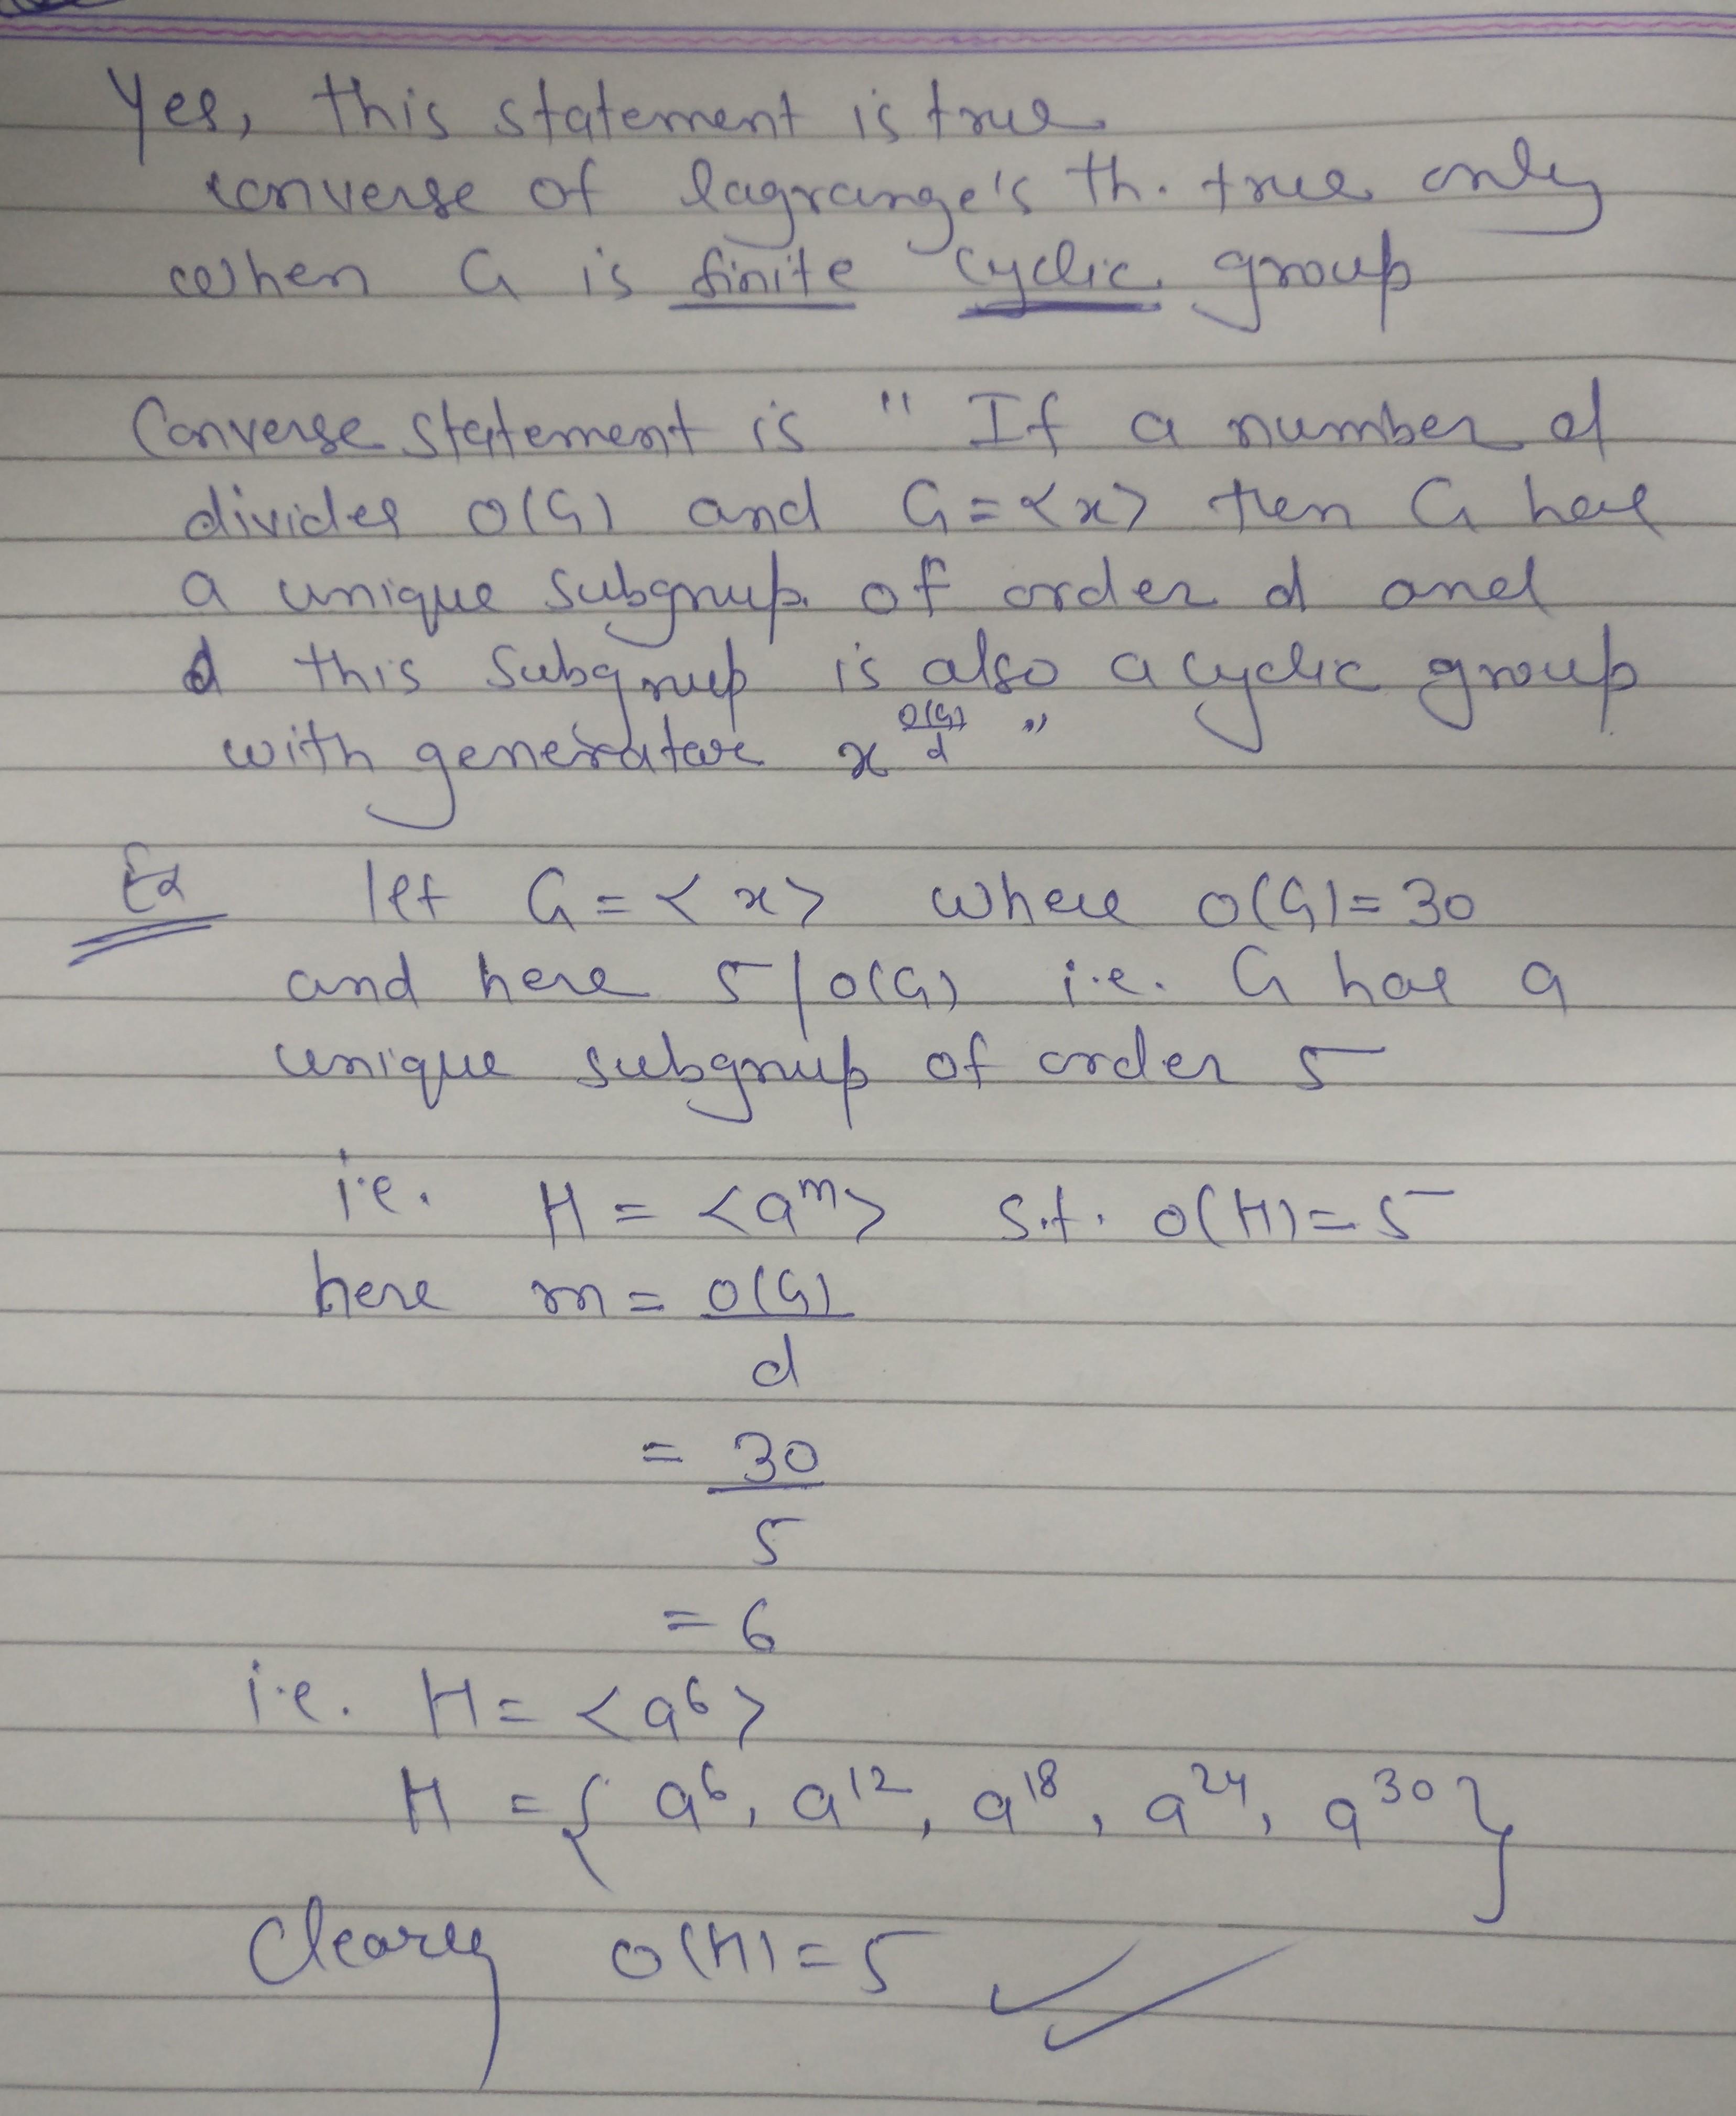 Yes, this statement is true
converse of lagrange's th. true only
when G is finite cyclic group
Converse statement is " If a number d
divides O(G) and G = <x> then G has
a unique subgroup of order d and
d this subgroup is also a cyclic group
with generator x^(O(G)/d) "
Ex let G = <x> where O(G) = 30
and here 5 | O(G) i.e. G has a
unique subgroup of order 5
i.e. H = <a^m> s.t. O(H) = 5
here m = O(G)
d
= 30
5
= 6
i.e. H = <a^6>
H = { a^6, a^12, a^18, a^24, a^30 }
Clearly O(H) = 5